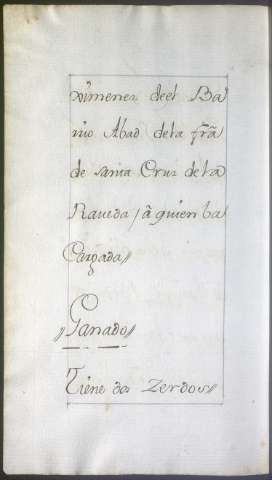 ximenez deel Ba
rrio Abad dela frã
de santa Cruz dela
Raueda, â quien ba
Cargada//
//Ganado//
Tiene dos Zerdos//